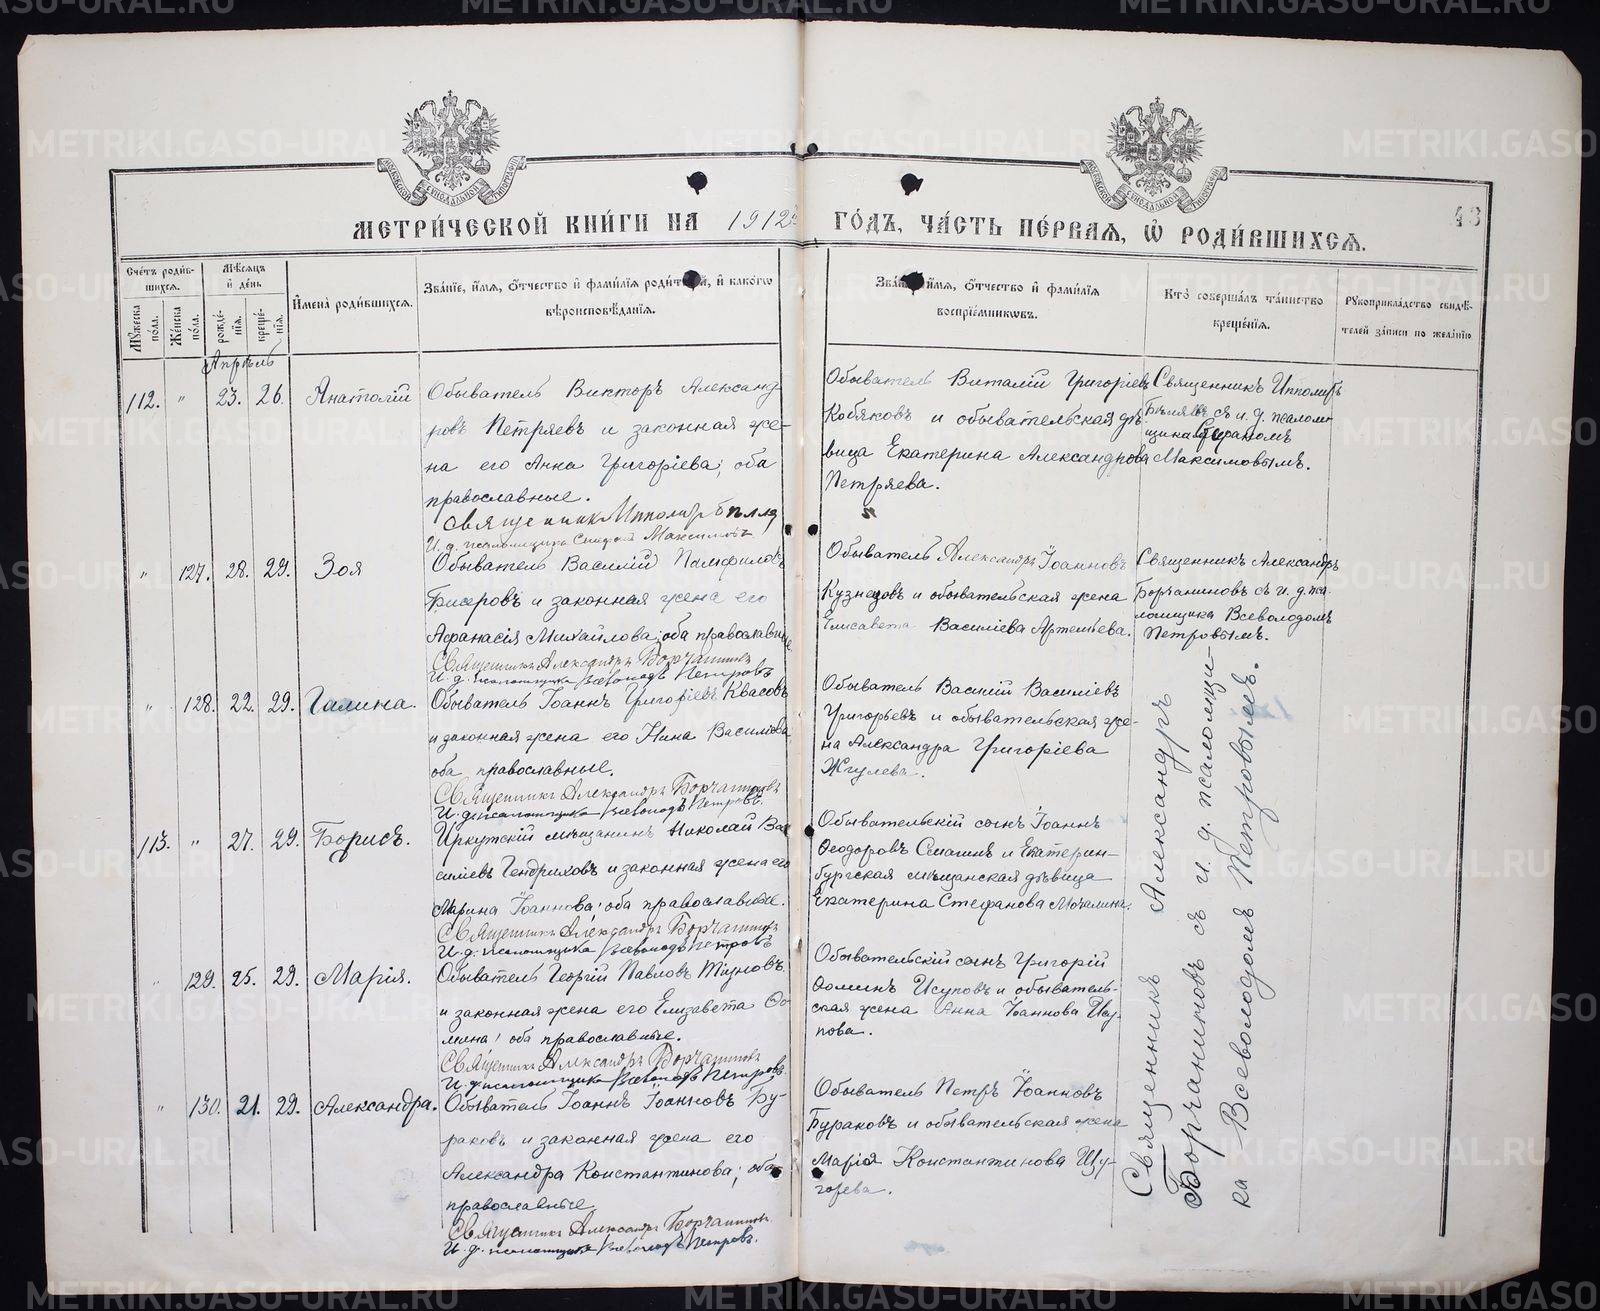 МЕТРИ́ЧЕСКОЙ КНИ́ГИ НА 1912 ГО́ДЪ, ЧА́СТЬ ПЕ́РВАЯ, Ѡ РОДИ́ВШИХСЯ.
43
Счетъ родившихся.
Мужеска пола.
Женска пола.
Мѣсяцъ и день
рожденія.
крещенія.
Имена родившихся.
Званіе, имя, отчество и фамилія родителей, и какого вѣроисповѣданія.
Званіе, имя, отчество и фамилія воспріемниковъ.
Кто совершалъ таинство крещенія.
Рукоприкладство свидѣтелей записи по желанію
Апрѣль
112. " 23. 26. Анатолій
Обыватель Викторъ Александ
ровъ Петряевъ и законная же-
на его Анна Григоріева; оба
православные.
Священникъ Ипполитъ
И. д. псаломщика Максимовъ
Обыватель Виталій Григоріевъ
Кобяковъ и обывательская дѣ-
вица Екатерина Александрова
Петряева.
Священникъ Ипполитъ
съ и. д. псалом-
щика
Максимовымъ.
" 127. 28. 29. Зоя
Обыватель Василій Памфиловъ
Бисеровъ и законная жена его
Афанасія Михайлова; оба православные
Священникъ Александръ Борчаниновъ
И. д. псаломщика Всеволодъ Петровъ
Обыватель Александръ Іоанновъ
Кузнецовъ и обывательская жена
Елисавета Василіева Артемьева.
Священникъ Александръ
Борчаниновъ съ и. д. пса-
ломщика Всеволодомъ
Петровымъ.
" 128. 22. 29. Галина.
Обыватель Іоаннъ Григоріевъ Квасовъ
и законная жена его Нина Василіева
оба православные.
Священникъ Александръ Борчаниновъ
И. д. псаломщика Всеволодъ Петровъ.
Обыватель Василій Василіевъ
Григорьевъ и обывательская же-
на Александра Григоріева
Жгулева.
Священникъ Александръ
Борчаниновъ съ и. д. псаломщи-
ка Всеволодомъ Петровымъ.
113. " 27. 29. Борисъ.
Иркутскій мѣщанинъ Николай Ва
силіевъ Гендриховъ и законная жена его
Марина Іоаннова; оба православные.
Священникъ Александръ Борчаниновъ
И. д. псаломщика Всеволодъ Петровъ
Обывательскій сынъ Іоаннъ
Ѳеодоровъ Смагинъ и Екатерин-
бургская мѣщанская дѣвица
Екатерина Стефанова Мочалина.
" 129. 25. 29. Марія.
Обыватель Георгій Павловъ
и законная жена его Елизавета Ѳо
мина; оба православные.
Священникъ Александръ Борчаниновъ
И. д. псаломщика Всеволодъ Петровъ.
Обывательскій сынъ Григорій
Ѳоминъ Исуповъ и обыватель-
ская жена Анна Іоаннова Ису-
пова.
" 130. 21. 29. Александра.
Обыватель Іоаннъ Іоанновъ Бу-
раковъ и законная жена его
Александра Константинова; оба
православные
Священникъ Александръ Борчаниновъ
И. д. псаломщика Всеволодъ Петровъ.
Обыватель Петръ Іоанновъ
Бураковъ и обывательская жена
Марія Константинова Щу-
горева.
METRIKI.GASO-URAL.RU